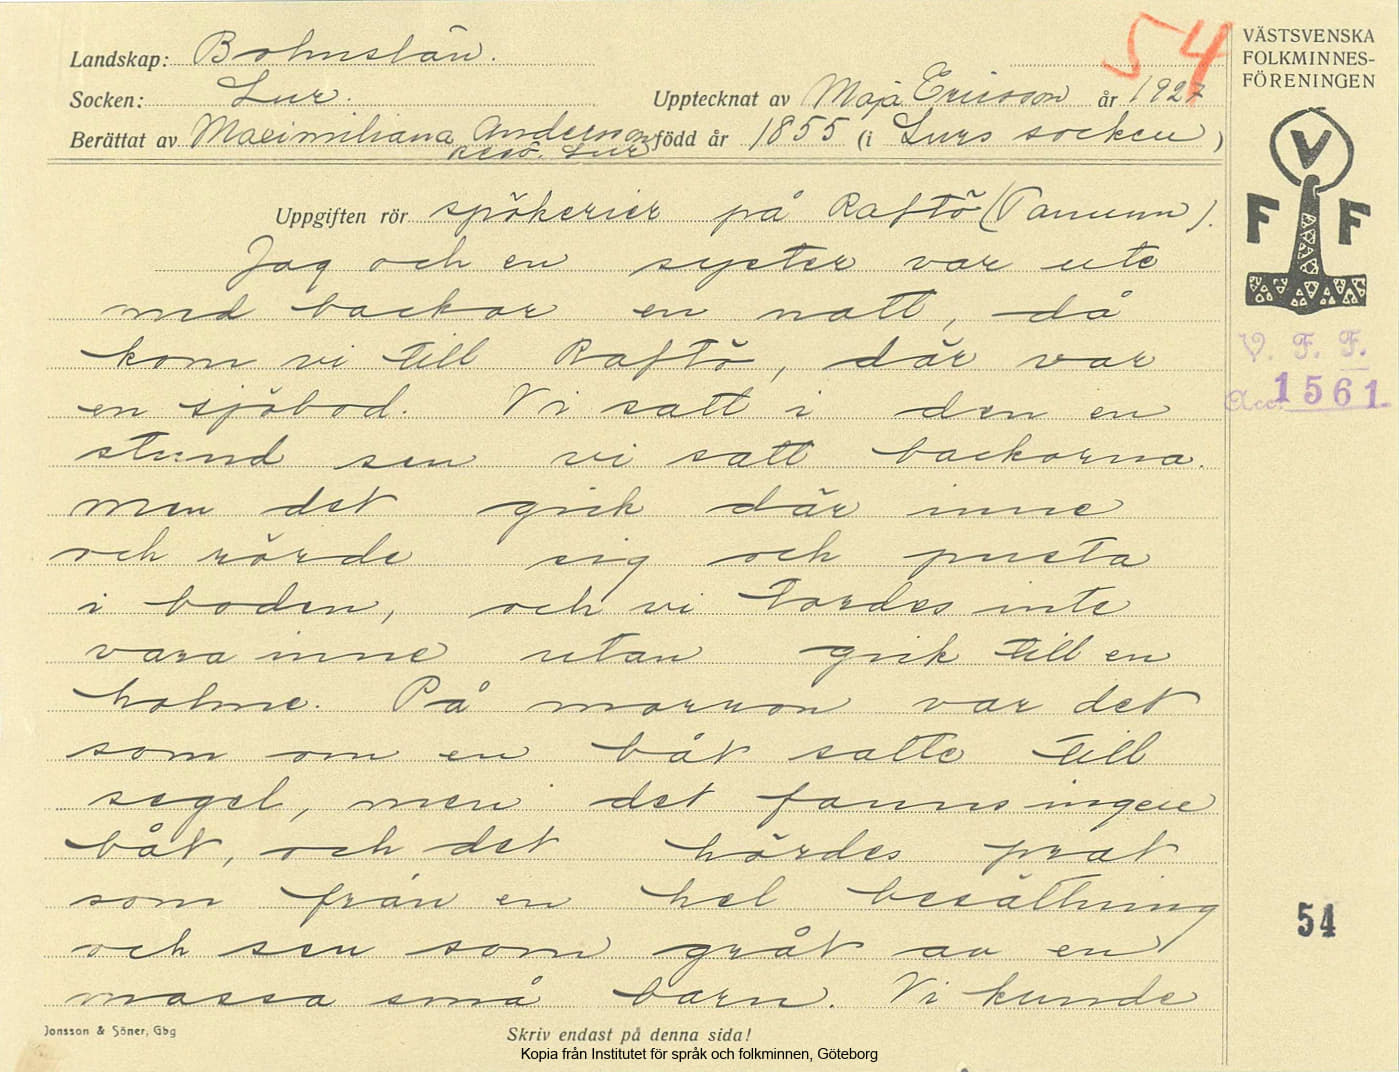 Landskap: Bohuslän.
Socken: Lur.
Upptecknat av Maja Ericsson år 1927
Berättat av Maximiliana Anderson född år 1855 (i Lurs socken)
Resö. Lur
Uppgiften rör spökerier på Raftö (Tanum).
Jag och en syster var ute
med backor en natt, då
kom vi till Raftö, där var
en sjöbod. Vi satt i den en
stund sen vi satt backorna.
men det gick där inne
och rörde sig och pusta
i boden, och vi tordes inte
vara inne utan gick till en
holme. På morron var det
som om en båt satte till
segel, men det fanns ingen
båt, och det hördes prat
som från en hel besättning
och sen som gråt av en
massa små barn. Vi kunde
Jonsson & Söner, Gbg
Skriv endast på denna sida!
Kopia från Institutet för språk och folkminnen, Göteborg
54
VÄSTSVENSKA
FOLKMINNES-
FÖRENINGEN
V
F F
V. F. F.
Acc. 1561.
54